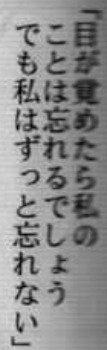 「目が覚めたら私の
ことは忘れるでしょう
でも私はずっと忘れない」